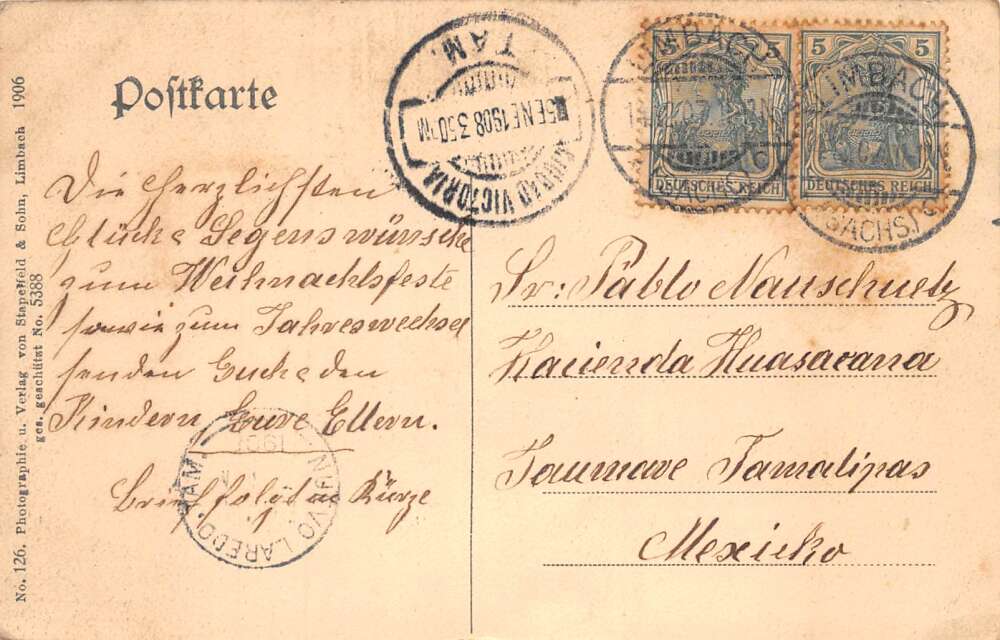 Postkarte
Die herzlichsten
Glücks Segenswünsche
zum Weihnachtsfeste
sowie zum Jahreswechsel
senden Euch den
Kindern Eure Eltern.
Brief folgt in Kürze
Sr: Pablo Nauschuetz
Hacienda Huasacana
Jaumave Tamalipas
Mexicko
5
DEUTSCHES REICH
5
DEUTSCHES REICH
LIMBACH
LIMBACH
SACHS.
TAM.
5 ENE 1908 3.50 PM
CIUDAD VICTORIA
NUEVO LAREDO, TAM.
No. 126. Photographie u. Verlag von Stapelfeld & Sohn, Limbach 1906
ges. geschützt No. 5388